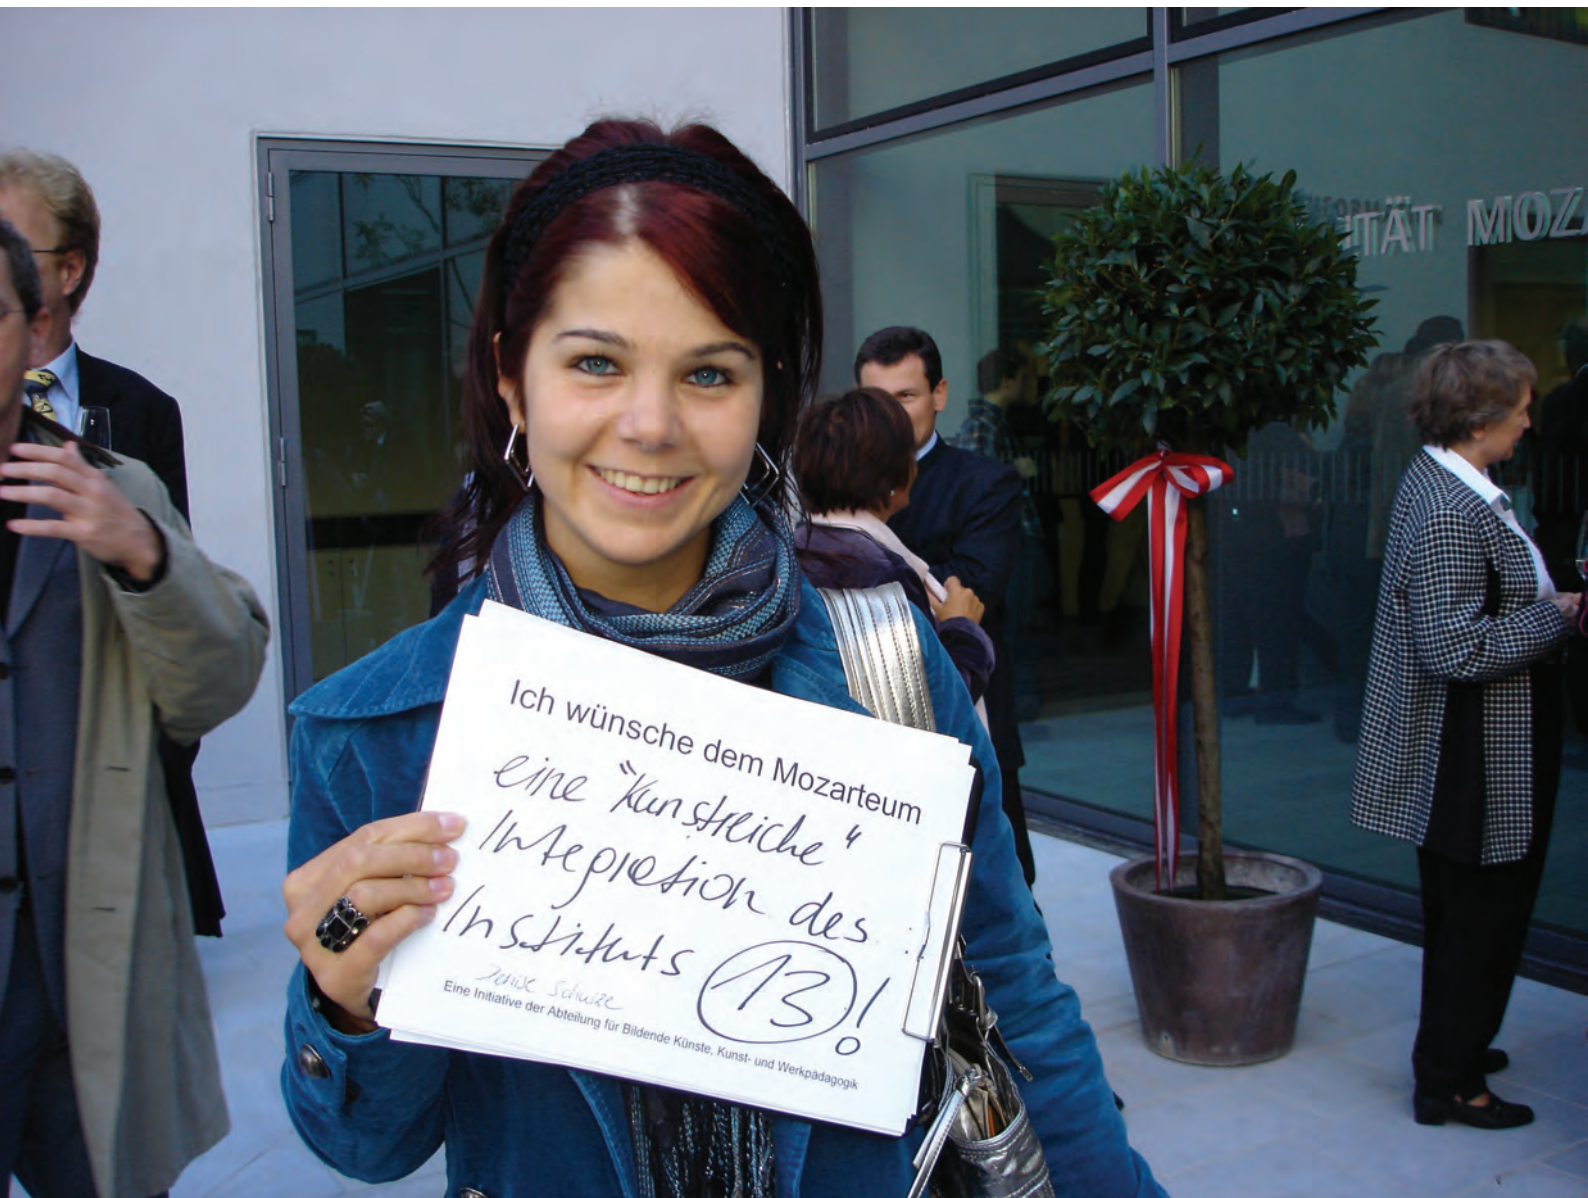 ITÄT MOZ
Ich wünsche dem Mozarteum
eine "Kunstreiche"
Integration des
Instituts 13!
Denise Schulze
Eine Initiative der Abteilung für Bildende Künste, Kunst- und Werkpädagogik